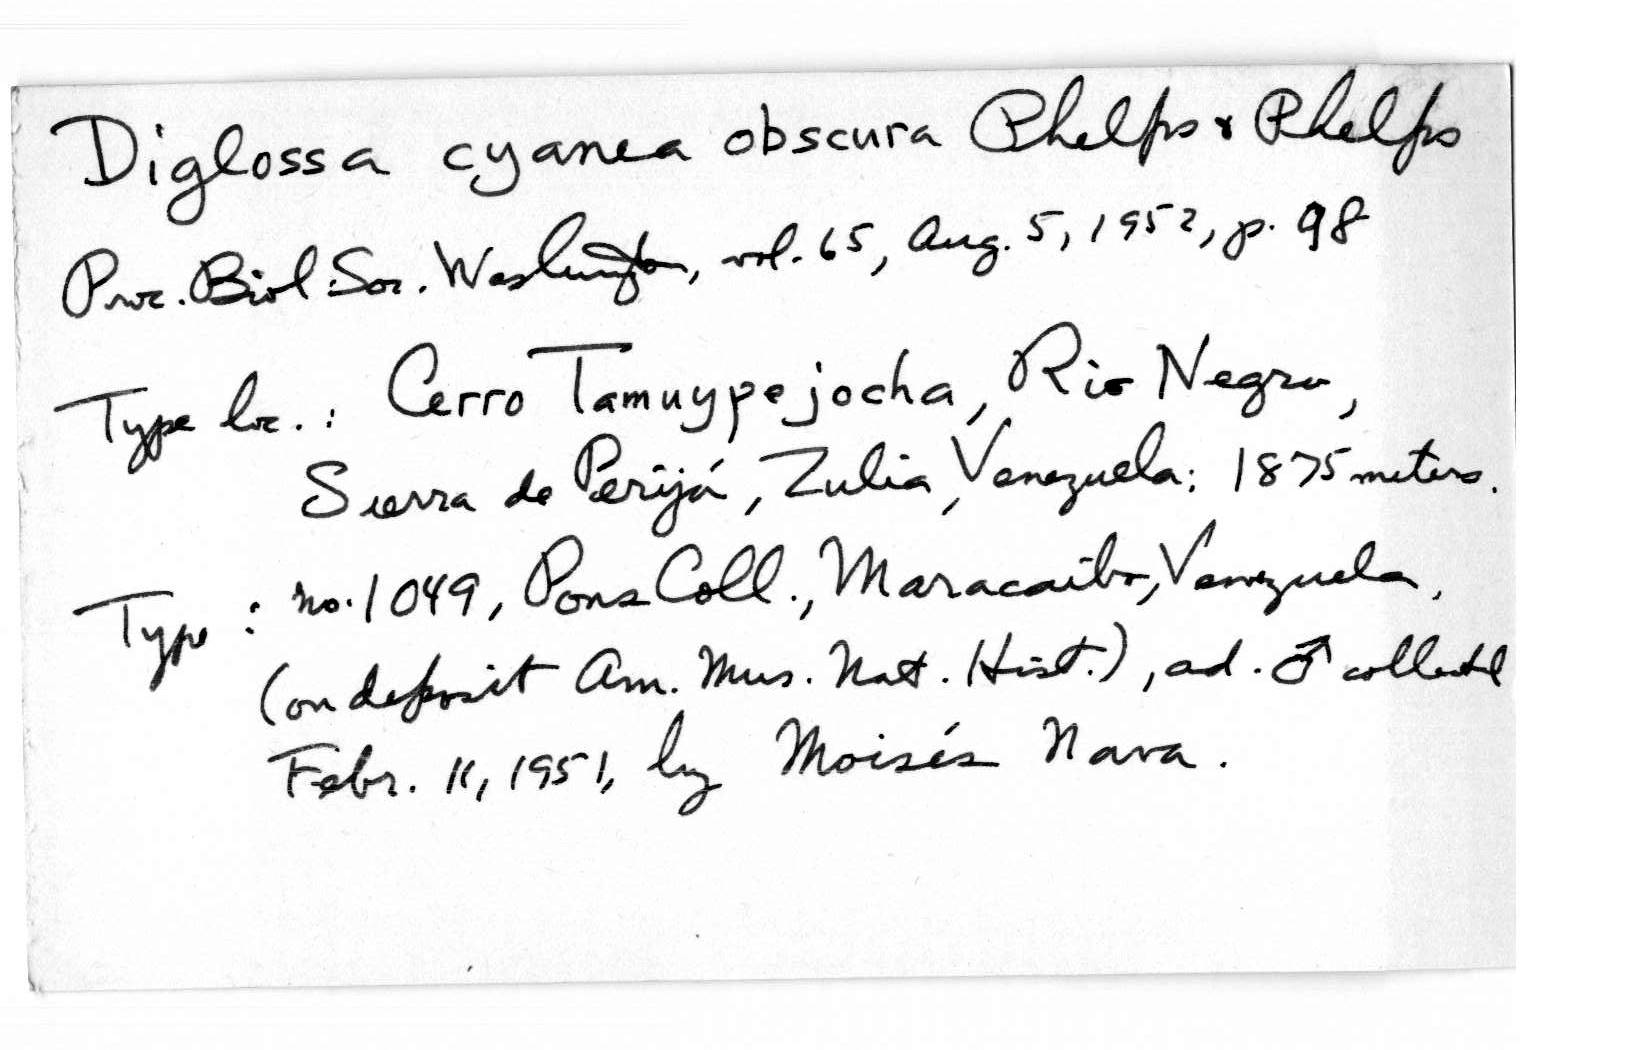 Diglossa cyanea obscura Phelps & Phelps
Proc. Biol. Soc. Washington, vol. 65, Aug. 5, 1952, p. 98
Type loc.: Cerro Tamuypejocha, Rio Negro,
Sierra de Perijá, Zulia, Venezuela; 1875 meters.
Type: no. 1049, Pons Coll., Maracaibo, Venezuela,
(on deposit Am. Mus. Nat. Hist.), ad. ♂ collected
Febr. 11, 1951, by Moisés Nava.